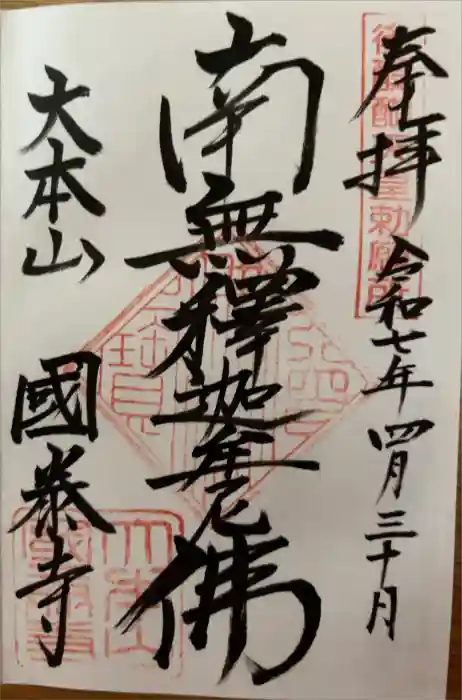 奉拝 令和七年四月三十月
後醍醐天皇勅願所
南無釋迦牟尼佛
大本山 國泰寺